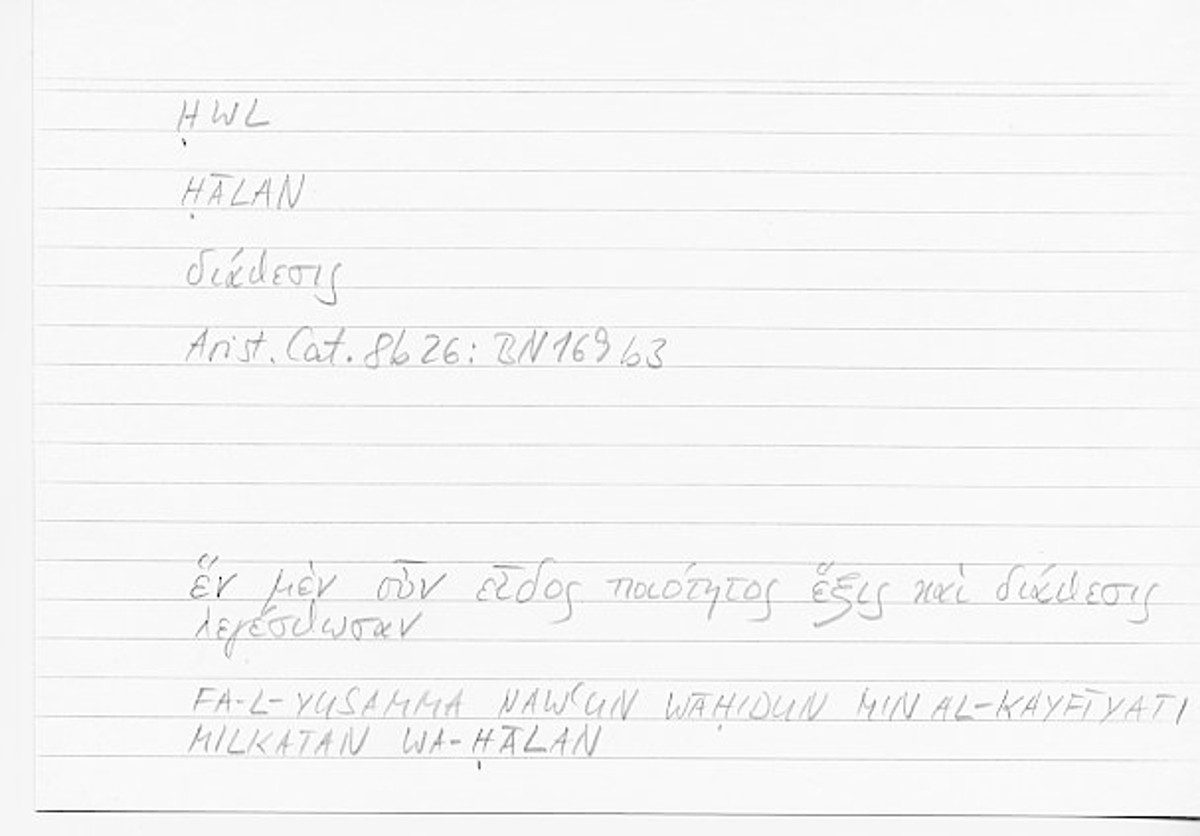 ḤWL
ḤĀLAN
διάθεσις
Arist. Cat. 8b26: BN169b3
ἕν μὲν οὖν εἶδος ποιότητος ἕξις καὶ διάθεσις
λεγέσθωσαν
FA-L-YUSAMMA NAWʿUN WĀḤIDUN MIN AL-KAYFĪYATI
MILKATAN WA-ḤĀLAN